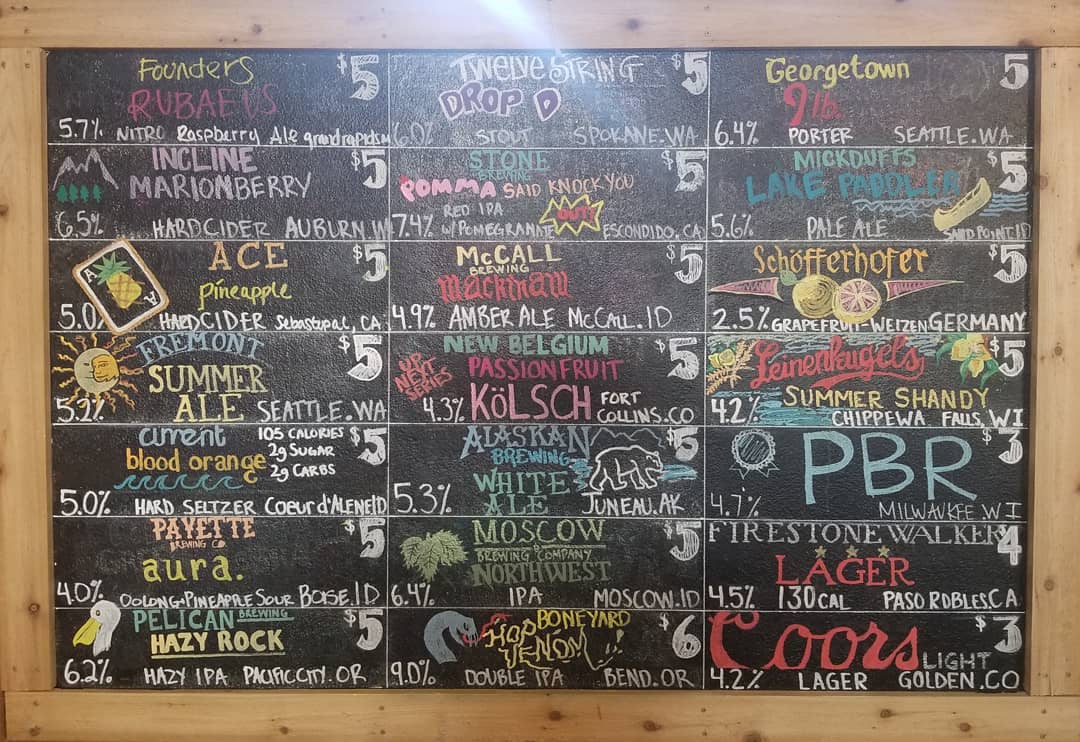 Founders
$5
RUBAEUS
5.7% NITRO Raspberry Ale grandrapids.m
TWELVE STRING
$5
DROP D
6.0% STOUT SPOKANE.WA
Georgetown
5
9 lb.
6.4% PORTER SEATTLE.WA
INCLINE
$5
MARIONBERRY
6.5% HARDCIDER AUBURN.W
STONE
BREWING
$5
POMMA SAID KNOCK YOU
OUT!
RED IPA
7.4% W/POMEGRANATE ESCONDIDO, CA
MICKDUFFS
$5
LAKE PADDLER
5.6% PALE ALE SANDPOINT.ID
A
A
ACE
$5
pineapple
5.0% HARDCIDER Sebastopal, CA
McCALL
BREWING
$5
mackinaw
4.9% AMBER ALE McCALL.ID
Schöfferhofer
$5
2.5% GRAPEFRUIT-WEIZEN GERMANY
FREMONT
$5
SUMMER
ALE
5.2% SEATTLE.WA
NEW BELGIUM
$5
UP NEXT SERIES
PASSIONFRUIT
KÖLSCH
4.3% FORT
COLLINS.CO
Leinenkugels
$5
SUMMER SHANDY
4.2% CHIPPEWA FALLS, WI
current
105 CALORIES
2g SUGAR
2g CARBS
$5
blood orange
5.0% HARD SELTZER Coeur d'AleneID
ALASKAN
BREWING
$5
WHITE
ALE
5.3% JUNEAU.AK
PBR
$3
4.7% MILWAUKEE WI
PAYETTE
BREWING CO
$5
aura.
4.0% OOLONG+PINEAPPLE SOUR BOISE.ID
MOSCOW
BREWING COMPANY
$5
NORTHWEST
6.4% IPA MOSCOW.ID
FIRESTONE WALKER
4
LAGER
4.5% 130CAL PASO ROBLES.CA
PELICAN BREWING
$5
HAZY ROCK
6.2% HAZY IPA PACIFIC CITY.OR
BONEYARD
$6
HOP
VENOM!!
9.0% DOUBLE IPA BEND.OR
Coors
LIGHT
$3
4.2% LAGER GOLDEN.CO